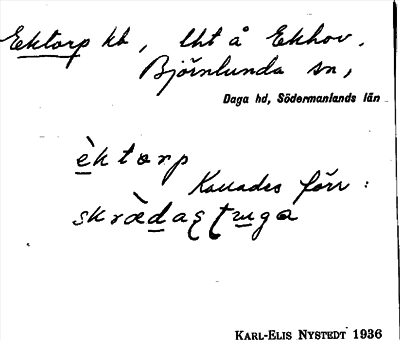 Ektorp kb, lht å Ekhov.
Björnlunda sn,
Daga hd, Södermanlands län
èktorp
Kallades förr:
skrædaʂtuga
KARL-ELIS NYSTEDT 1936